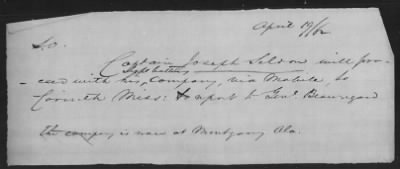 April 19/62
S.O.
Captain Joseph Seldon will pro-
-ceed with his Light battery Company, via Mobile, to
Corinth Miss: to report to Genl. Beauregard
The company is now at Montgomy Ala.